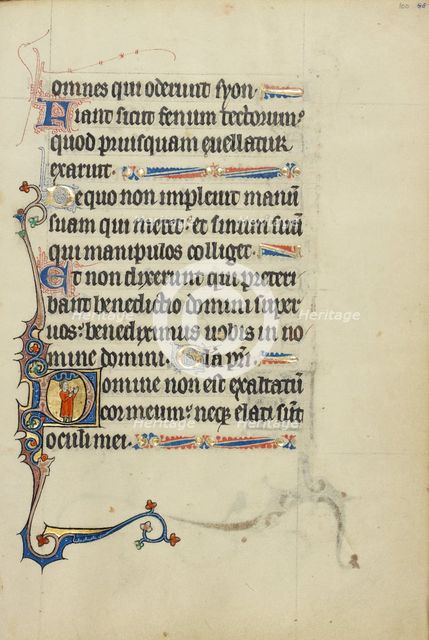 100 86
omnes qui oderunt syon.
Fiant sicut fenum tectorum:
quod priusquam euellatur
exaruit.
De quo non impleuit manū
suam qui metet: et sinum suū
qui manipulos colliget.
Et non dixerunt qui preteri
bant benedictio domini super
uos: benediximus uobis in no
mine domini. Glīa pr̄i.
Domine non est exaltatū
cor meum: neqꝫ elati sūt
oculi mei.
Heritage
Heritage
Heritage
Heritage
Heritage